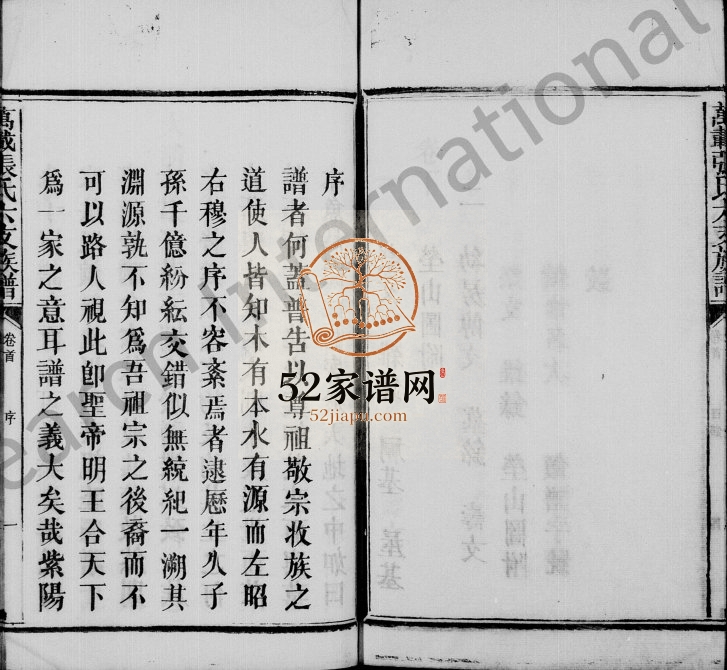 萬載張氏六支族譜
序
譜者何蓋普告以尊祖敬宗收族之
道使人皆知木有本水有源而左昭
右穆之序不容紊焉者逮歷年久子
孫千億紛紜交錯似無統紀一溯其
淵源孰不知爲吾祖宗之後裔而不
可以路人視此卽聖帝明王合天下
爲一家之意耳譜之義大矣哉紫陽
萬載張氏六支族譜
卷首
序
一
52家谱网
52jiapu.com
earch International